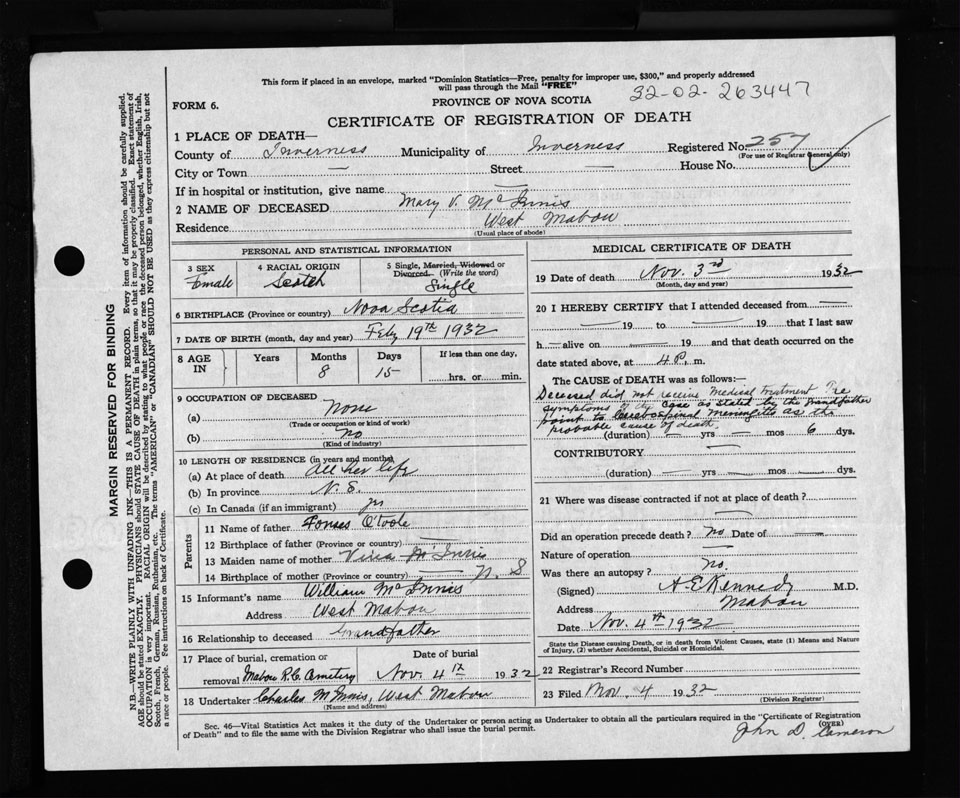 This form if placed in an envelope, marked "Dominion Statistics—Free, penalty for improper use, $300," and properly addressed
will pass through the Mail "FREE"
32-02-263447
FORM 6.
PROVINCE OF NOVA SCOTIA
CERTIFICATE OF REGISTRATION OF DEATH
1 PLACE OF DEATH—
County of Inverness Municipality of Inverness Registered No. 257
(For use of Registrar General only)
City or Town — Street — House No.
If in hospital or institution, give name —
2 NAME OF DECEASED Mary V. McInnis
Residence West Mabou
(Usual place of abode)
PERSONAL AND STATISTICAL INFORMATION
3 SEX Female
4 RACIAL ORIGIN Scotch
5 Single, Married, Widowed or
Divorced. (Write the word)
Single
6 BIRTHPLACE (Province or country) Nova Scotia
7 DATE OF BIRTH (month, day and year) Feby 19th 1932
8 AGE IN Years Months 8 Days 15 If less than one day, hrs. or min.
9 OCCUPATION OF DECEASED
(a) None
(Trade or occupation or kind of work)
(b) no
(Kind of industry)
10 LENGTH OF RESIDENCE (in years and months)
(a) At place of death All her life
(b) In province N. S.
(c) In Canada (if an immigrant)
Parents
11 Name of father O'Toole
12 Birthplace of father (Province or country) —
13 Maiden name of mother McInnis
14 Birthplace of mother (Province or country) — N. S
15 Informant's name William McInnis
Address West Mabou
16 Relationship to deceased Grandfather
17 Place of burial, cremation or Date of burial
removal Mabou R.C. Cemetery Nov. 4th 1932
18 Undertaker Charles McInnis, West Mabou
(Name and address)
MEDICAL CERTIFICATE OF DEATH
19 Date of death Nov. 3rd 1932
(Month, day and year)
20 I HEREBY CERTIFY that I attended deceased from —
— 19 to — 19 that I last saw
h — alive on — 19 and that death occurred on the
date stated above, at 4 P. m.
The CAUSE OF DEATH was as follows:—
Deceased did not receive Medical treatment The
symptoms of the case as stated by the grandfather
point to cerebrospinal meningitis as the
probable cause of death.
(duration) — yrs — mos 6 dys.
CONTRIBUTORY —
(duration) — yrs. — mos. — dys.
21 Where was disease contracted if not at place of death? —
Did an operation precede death? no Date of —
Nature of operation —
Was there an autopsy? no.
(Signed) A. E. Kennedy M.D.
Address Mabou
Date Nov. 4th 1932
State the Disease causing Death, or in death from Violent Causes, state (1) Means and Nature
of Injury, (2) whether Accidental, Suicidal or Homicidal.
22 Registrar's Record Number
23 Filed Nov. 4 1932
(Division Registrar)
Sec. 46—Vital Statistics Act makes it the duty of the Undertaker or person acting as Undertaker to obtain all the particulars required in the "Certificate of Registration
of Death" and to file the same with the Division Registrar who shall issue the burial permit.
(OVER)
John D. Cameron
MARGIN RESERVED FOR BINDING
N.B.—WRITE PLAINLY WITH UNFADING INK—THIS IS A PERMANENT RECORD. Every item of information should be carefully supplied.
AGE should be stated EXACTLY. PHYSICIANS should STATE CAUSE OF DEATH in plain terms, so that it may be properly classified. Exact statement of
OCCUPATION is very important. RACIAL ORIGIN will be described by stating to what people or race the deceased person belonged, whether English, Irish,
Scotch, French, German, Russian, Ruthenian, etc. The terms "AMERICAN" or "CANADIAN" SHOULD NOT BE USED as they express citizenship but not
a race or people. Fee instructions on back of Certificate.